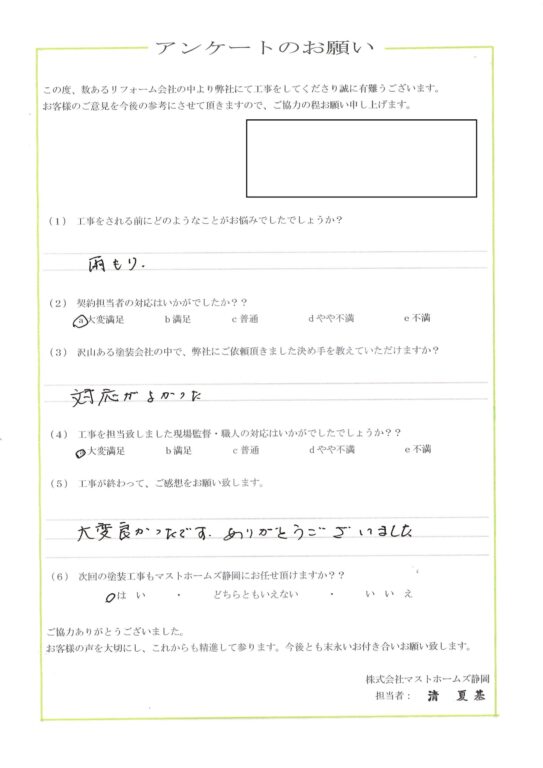 アンケートのお願い
この度、数あるリフォーム会社の中より弊社にて工事をしてくださり誠に有難うございます。
お客様のご意見を今後の参考にさせて頂きますので、ご協力の程お願い申し上げます。
（1） 工事をされる前にどのようなことがお悩みでしたでしょうか？
雨もり.
（2） 契約担当者の対応はいかがでしたか？？
a大変満足 b満足 c普通 dやや不満 e不満
（3） 沢山ある塗装会社の中で、弊社にご依頼頂きました決め手を教えていただけますか？
対応がよかった
（4） 工事を担当致しました現場監督・職人の対応はいかがでしたでしょうか？？
a大変満足 b満足 c普通 dやや不満 e不満
（5） 工事が終わって、ご感想をお願い致します。
大変良かったです. ありがとうございました
（6） 次回の塗装工事もマストホームズ静岡にお任せ頂けますか？？
はい ・ どちらともいえない ・ いいえ
ご協力ありがとうございました。
お客様の声を大切にし、これからも精進して参ります。今後とも末永いお付き合いお願い致します。
株式会社マストホームズ静岡
担当者： 清 夏基